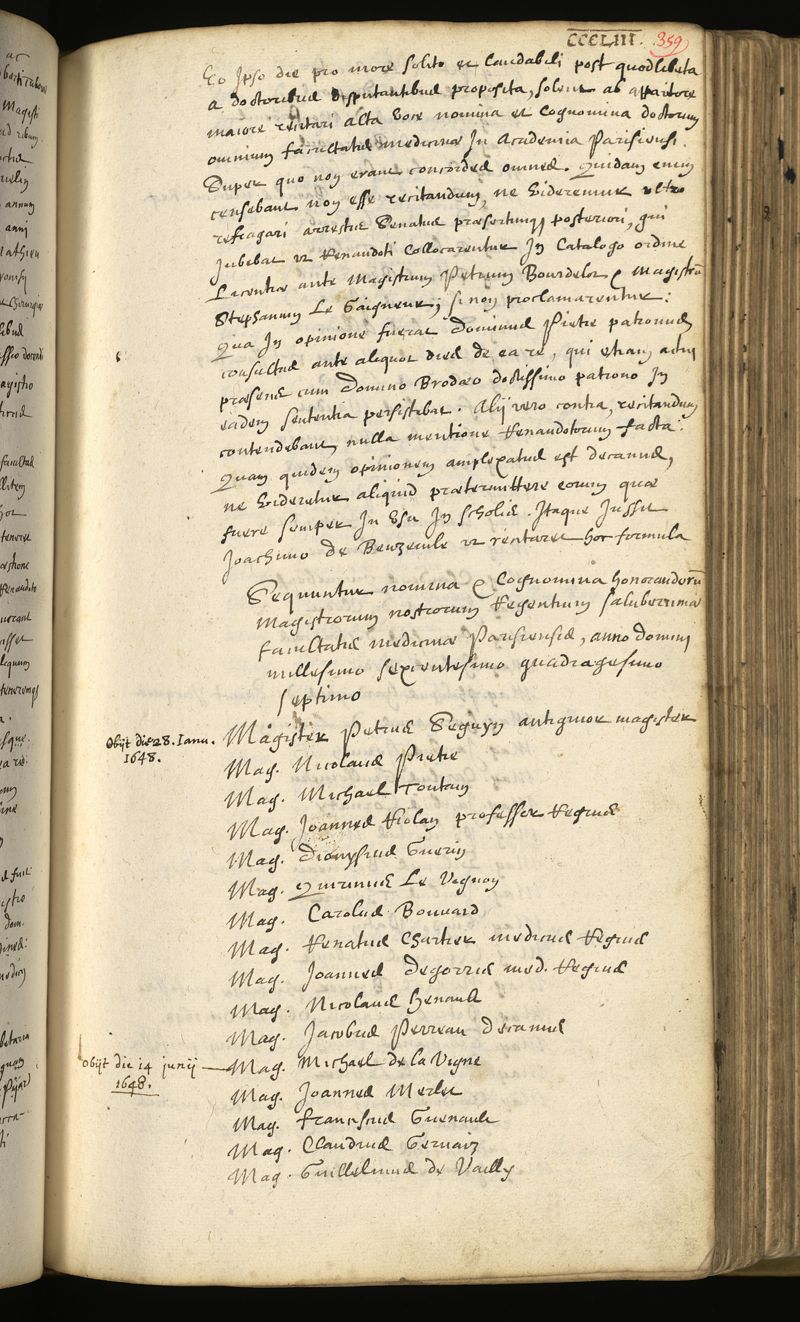 CCCLIII. 359
Eo ipso die pro more solito et laudabili post quodlibeta
a doctoribus disputantibus proposita, solent ab apparitore
maiore recitari alta voce nomina et cognomina doctorum
omnium facultatis medicinæ In Academia Parisiensi.
Super quo non erant concordes omnes. Quidam enim
censebant non esse recitandum, ne videremur ultro
refragari arrestis Senatus præsertimque posteriori, qui
Jubebat ut Renaudoti collocarentur In Catalogo ordine
Licentiæ ante Magistrum Petrum Bourdelot & Magistrũ
Stephanum Le Gaigneur; si non proclamarentur:
Qua In opinione fuerat Dominus Pietre patronus
consultus ante aliquot dies de ea re, qui etiam
præsens cum Domino Brodæo doctissimo patrono In
eadem sententia persistebat. Alij vero contra, recitandum
contendebant, nulla mentione Renaudotorum facta:
Quam quidem opinionem amplexatus est decanus,
ne videretur aliquid prætermittere eorum quæ
fuere semper In Usu In scholis. Itaque Jussit
Joachimo de Beuzevile ut recitaret hoc formula
Sequuntur nomina & Cognomina honorandorũ
Magistrorum nostrorum Regentium saluberrimæ
facultatis medicinæ Parisiensis, anno domini
millesimo sexcentesimo quadragesimo
septimo
Obijt die 28. Ianu. 1648. Magister Petrus Seguyn antiquior magister
Mag. Nicolaus Pietre
Mag. Michael Toutain
Mag. Joannes Riolan professor Regius
Mag. Dionysius Guerin
Mag. Quirinus Le Vignon
Mag. Carolus Bouvard
Mag. Renatus Chartier medicus Regius
Mag. Joannes Degorris med. Regius
Mag. Nicolaus Henault
Mag. Jacobus Perreau decanus
Obijt die 14 junij 1648. Mag. Michael de la Vigne
Mag. Joannes Merlet
Mag. Franciscus Guenault
Mag. Claudius Gervais
Mag. Guillelmus de Vailly